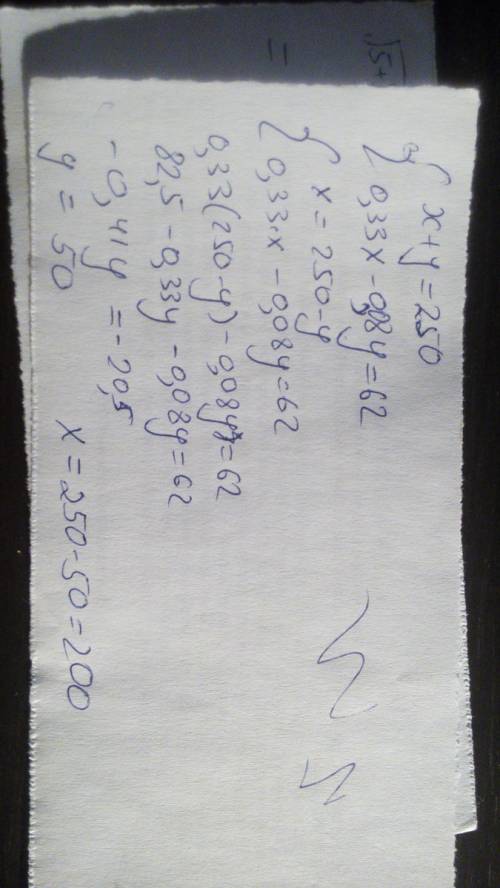 x+y=250
0,33x-0,08y=62
x=250-y
0,33x-0,08y=62
0,33(250-y)-0,08y=62
82,5-0,33y-0,08y=62
-0,41y=-20,5
y=50
x=250-50=200
√5+
=